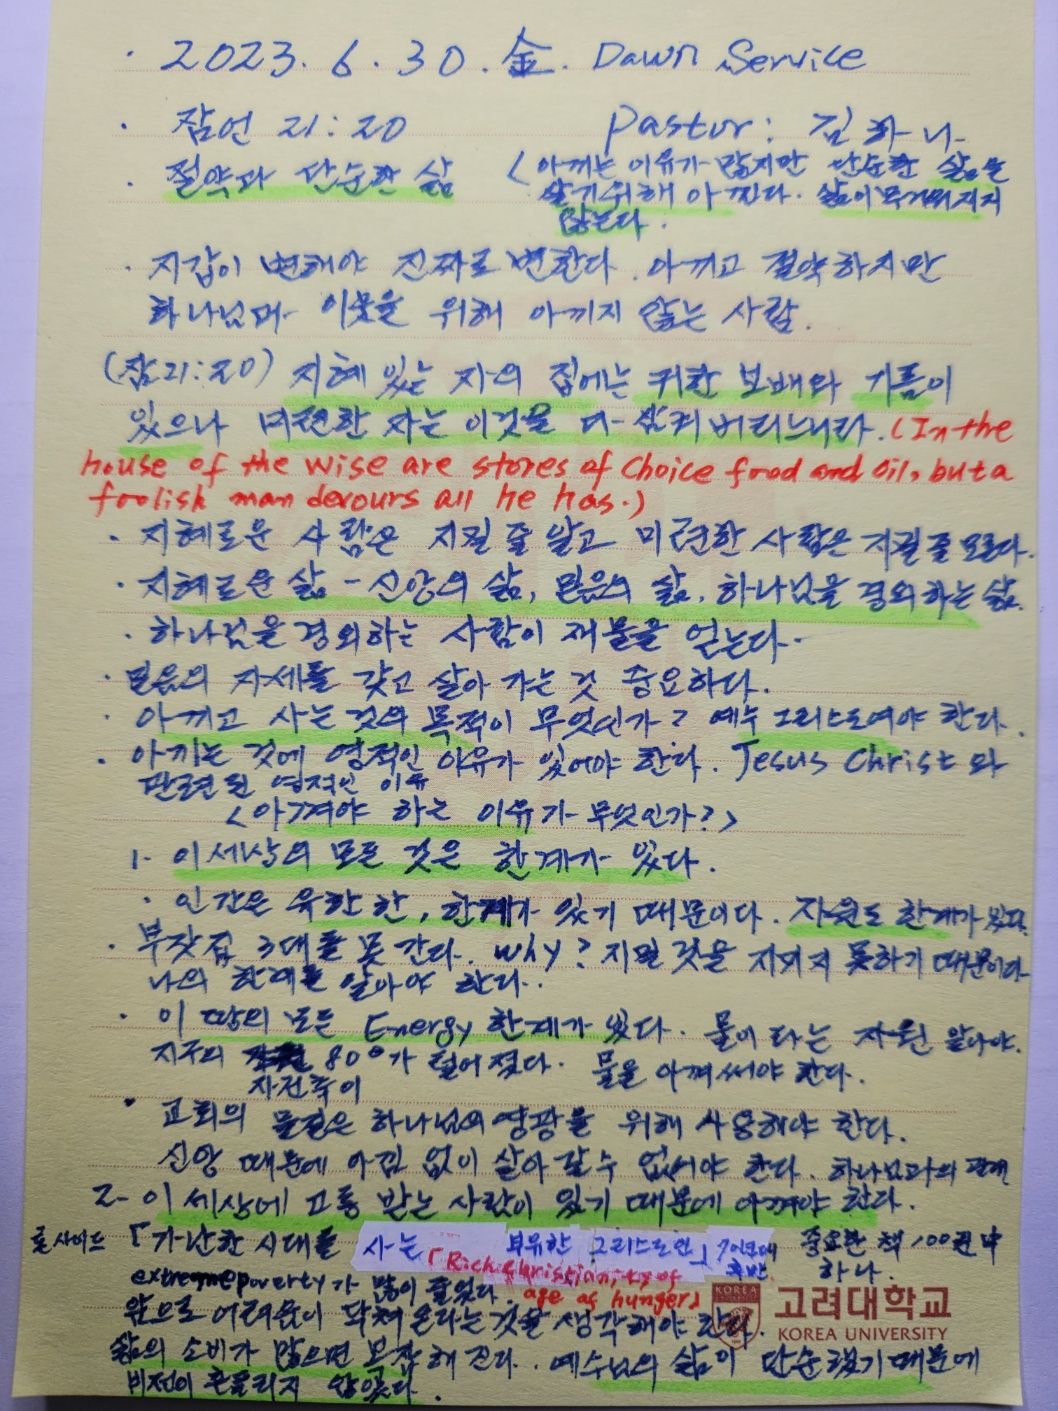 · 2023. 6. 30. 金. Dawn Service
· 잠언 21:20 Pastor: 김하나
· 절약과 단순한 삶 <아끼는 이유가 많지만 단순한 삶을
살기위해 아낀다. 삶이 무거워지지
않는다.
· 지갑이 변해야 진짜로 변한다. 아끼고 절약하지만
하나님과 이웃을 위해 아끼지 않는 사람.
(잠21:20) 지혜 있는 자의 집에는 귀한 보배와 기름이
있으나 미련한 자는 이것을 다 삼켜 버리느니라. (In the
house of the wise are stores of choice food and oil, but a
foolish man devours all he has.)
· 지혜로운 사람은 지킬 줄 알고 미련한 사람은 지킬 줄 모른다.
· 지혜로운 삶 - 신앙의 삶, 믿음의 삶, 하나님을 경외하는 삶.
· 하나님을 경외하는 사람이 재물을 얻는다.
· 믿음의 자세를 갖고 살아 가는 것 중요하다.
· 아끼고 사는 것의 목적이 무엇인가? 예수 그리스도여야 한다.
· 아끼는 것에 영적인 이유가 있어야 한다. Jesus Christ 와
관련된 영적인 이유
<아껴야 하는 이유가 무엇인가?>
1- 이 세상의 모든 것은 한계가 있다.
· 인간은 유한한, 한계가 있기 때문이다. 자원도 한계가 있다.
· 부잣집 3대를 못 간다. Why? 지킬 것을 지키지 못하기 때문이다
나의 한계를 알아야 한다..
· 이 땅의 모든 Energy 한계가 있다. 물이라는 자원 알아야.
지구의 80°가 틀어졌다. 물을 아껴써야 한다.
자전축이
· 교회의 물질은 하나님의 영광을 위해 사용해야 한다.
신앙 때문에 아낌 없이 살아갈 수 없어야 한다. 하나님과의 관계
2- 이 세상에 고통 받는 사람이 있기 때문에 아껴야 한다.
로 사이드 「가난한 시대를 사는 부유한 그리스도인」 70년대 중요한 책 100권 中
「Rich Christian, ty of 후반 하나.
extreme poverty가 많이 줄었다. age of hunger」
앞으로 어려움이 닥쳐 온다는 것을 생각해야 한다.
고려대학교
KOREA
KOREA UNIVERSITY
삶의 소비가 많으면 복잡해 진다.. 예수님의 삶이 단순했기 때문에
비전이 흔들리지 않았다.